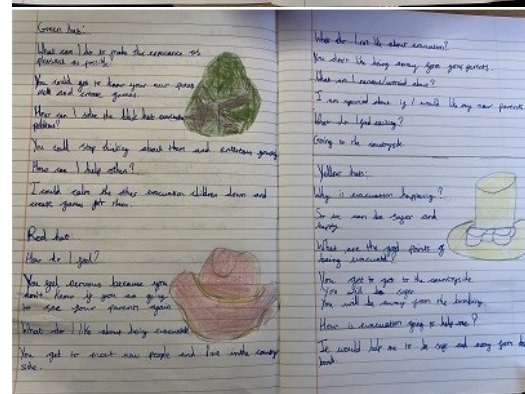 Green hat:
What can I do to make the experience as
pleasant as possible?
You could get to know your new
well and create games.
How can I solve the black hat
problems?
You could stop thinking about them and
How can I help others?
I could calm the other evacuation children down and
create games for them.
Red hat:
How do I feel?
You feel nervous because you
don't know if you are going
to see your parents again
What do I like about being
You get to meet new people and live in the country
side.
What do I not like about evacuation?
You don't like being away from your parents.
What am I nervous/worried about?
I am worried about if I would like my new parents.
What do I feel
Going to the countryside.
Yellow hat:
Why is evacuation happening?
So we can be safer and
happy.
What are the good points of
being evacuated?
You get to go to the countryside.
You will be safer.
You will be away from the bombing.
How is evacuation going to help me?
It would help me to be safe and away from